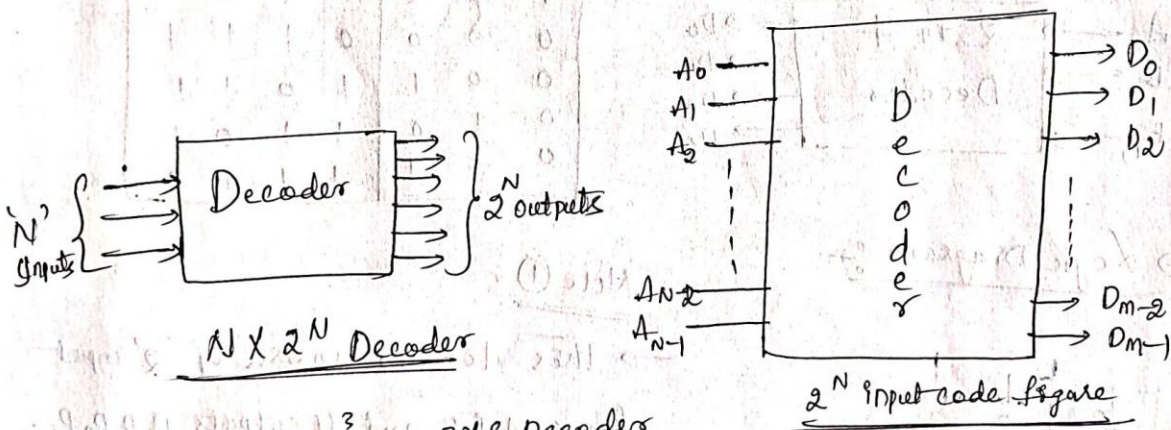 'N' Inputs
Decoder
2^N outputs
N X 2^N Decoder
A0
A1
A2
AN-2
AN-1
Decoder
D0
D1
D2
Dm-2
Dm-1
2^N input code figure
3
Decoder